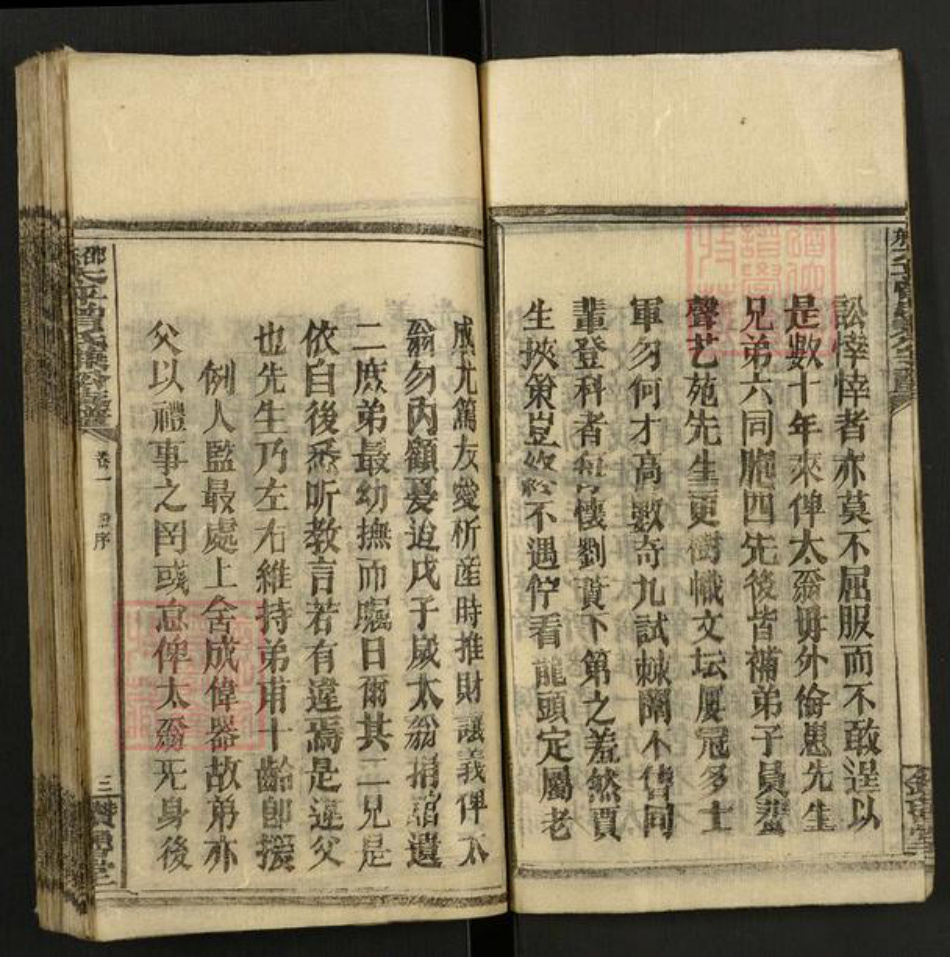 訟悻悻者亦莫不屈服而不敢逞以
是數十年來俾太翁毋外侮患先生
兄弟六同胞四先後皆補弟子員蜚
聲艺苑先生更樹幟文坛屢冠多士
軍勿何才高數奇九試棘闈不售同
輩登科者每懷劉蕡下第之羞然賈
生挾策豈終不遇佇看龍頭定屬老
成尤篤友愛析產時推財讓義俾太
翁勿內顧憂迨戊子歲太翁捐館遺
二庶弟最幼撫而囑曰爾其二兄是
依自後悉听教言若有違焉是違父
也先生乃左右維持弟甫十齡卽援
例人監最處上舍成偉器故弟亦
父以禮事之罔或怠俾太翁死身後
卷一
序
三